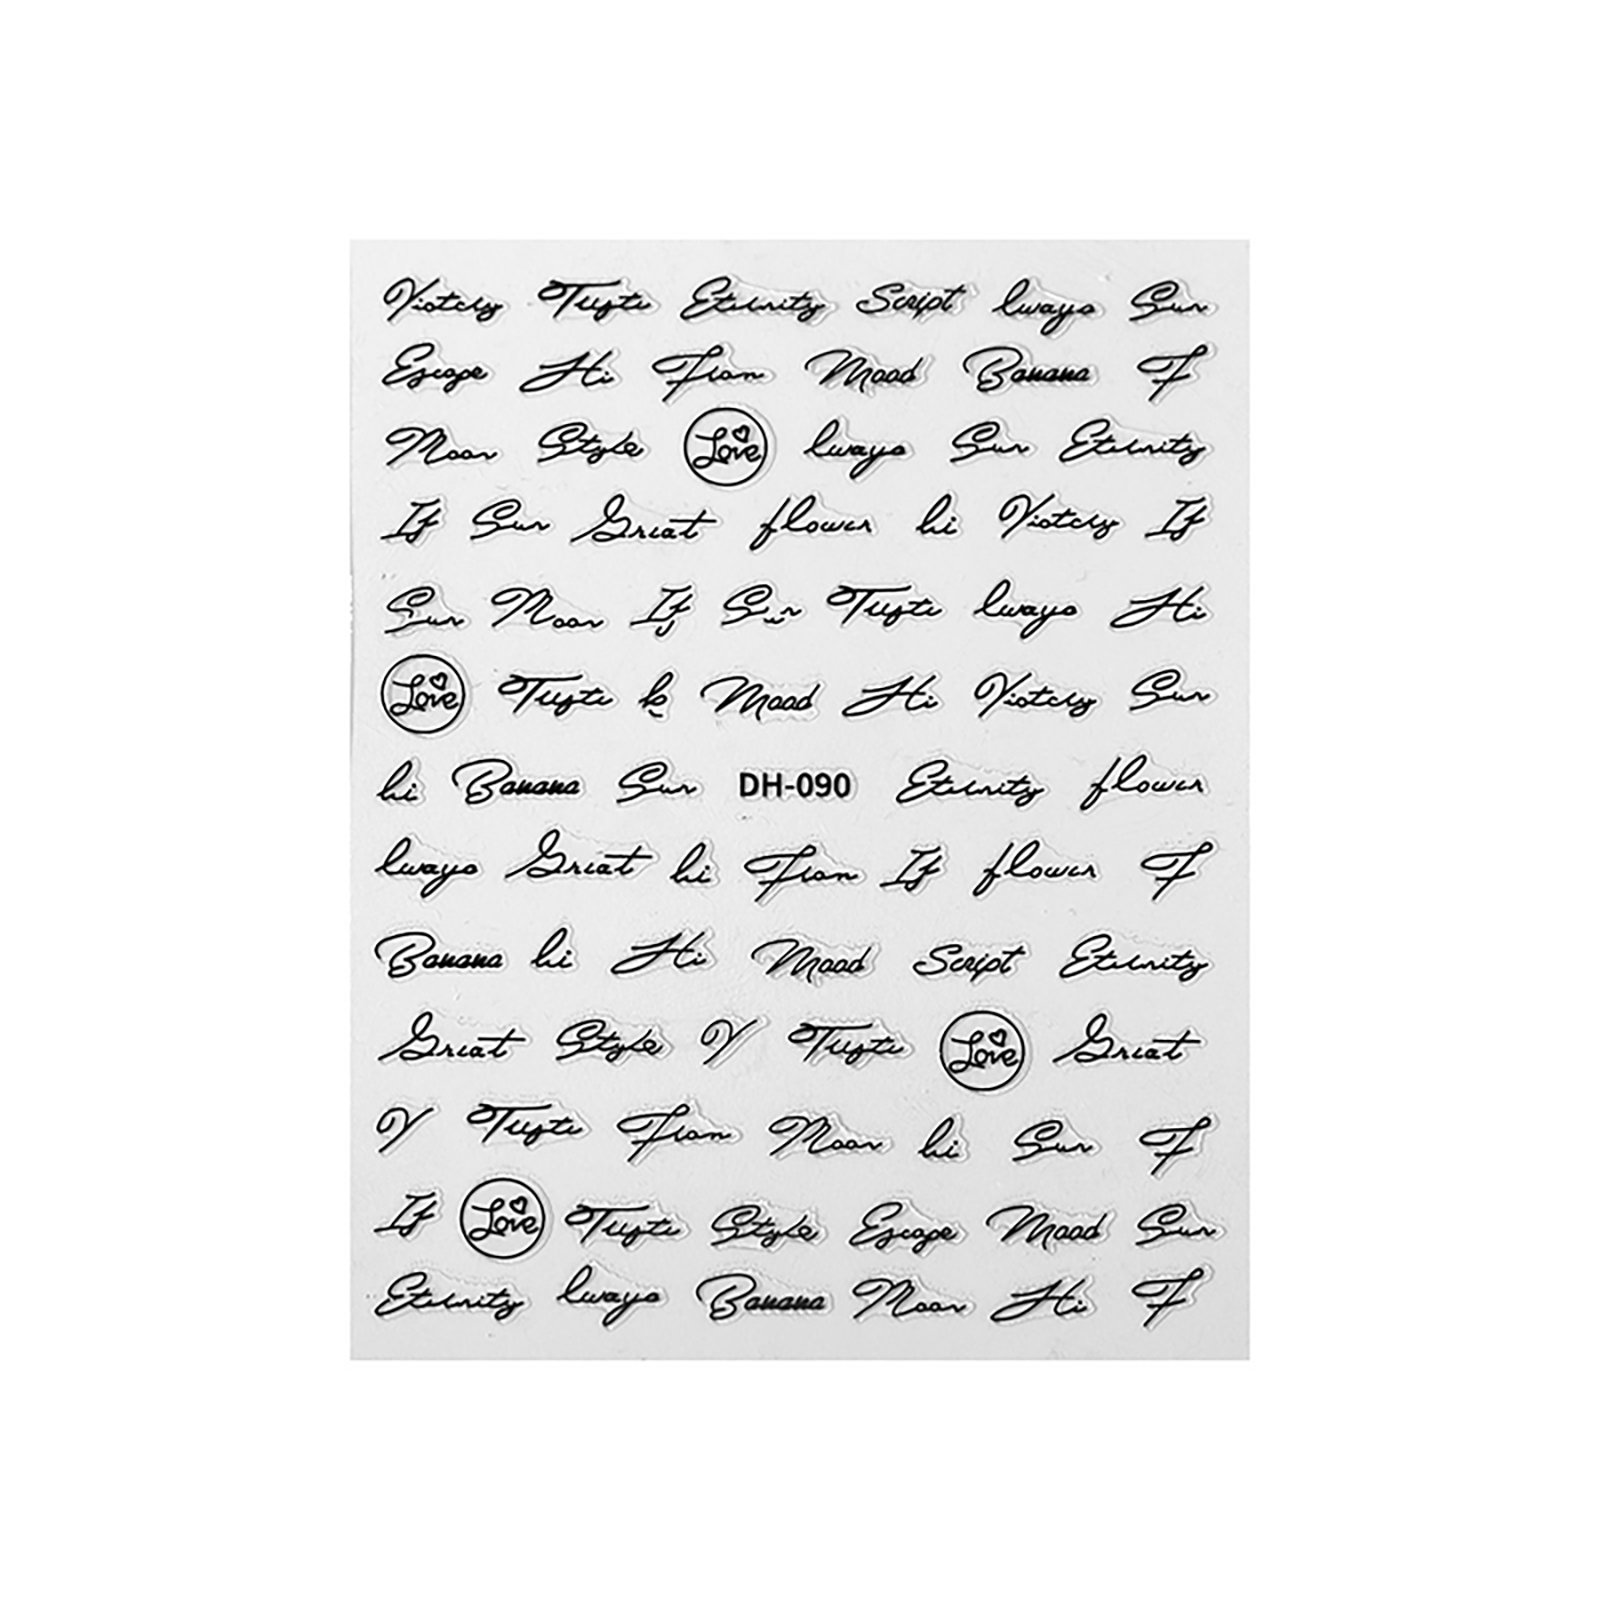 Victcly Tuyti Eternity Script lways Sun
Escape Hi Flom Mood Banana F
Moon Style Love lways Sun Eternity
If Sun Great flower hi Victcly If
Sun Moon If Sun Tuyti lways Hi
Love Tuyti Mood Hi Victcly Sun
hi Banana Sun DH-090 Eternity flower
lways Great hi Flom If flower F
Banana hi Hi Mood Script Eternity
Great Style Y Tuyti Love Great
Y Tuyti Flom Moon hi Sun F
If Love Tuyti Style Escape Mood Sun
Eternity lways Banana Moon Hi F